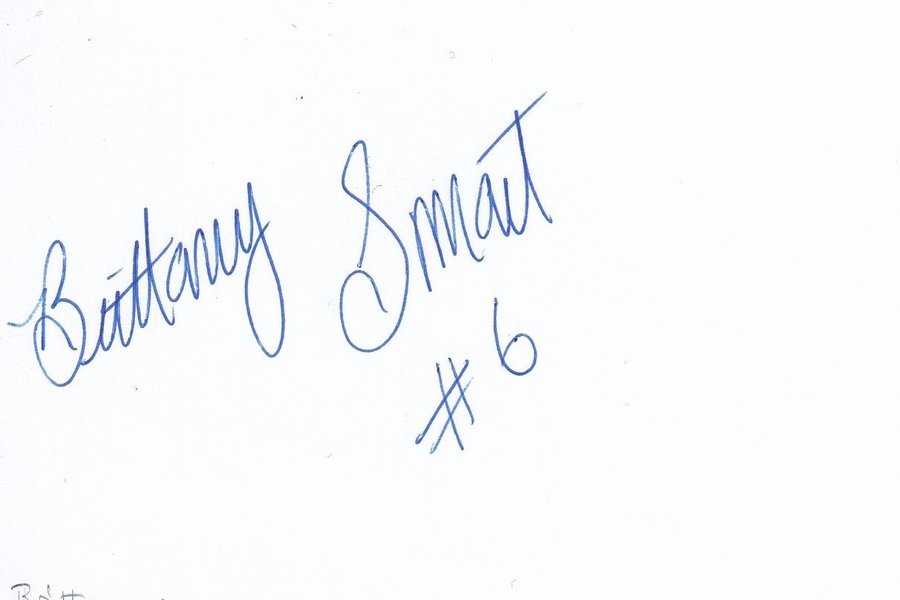 Brittany Smart
#6